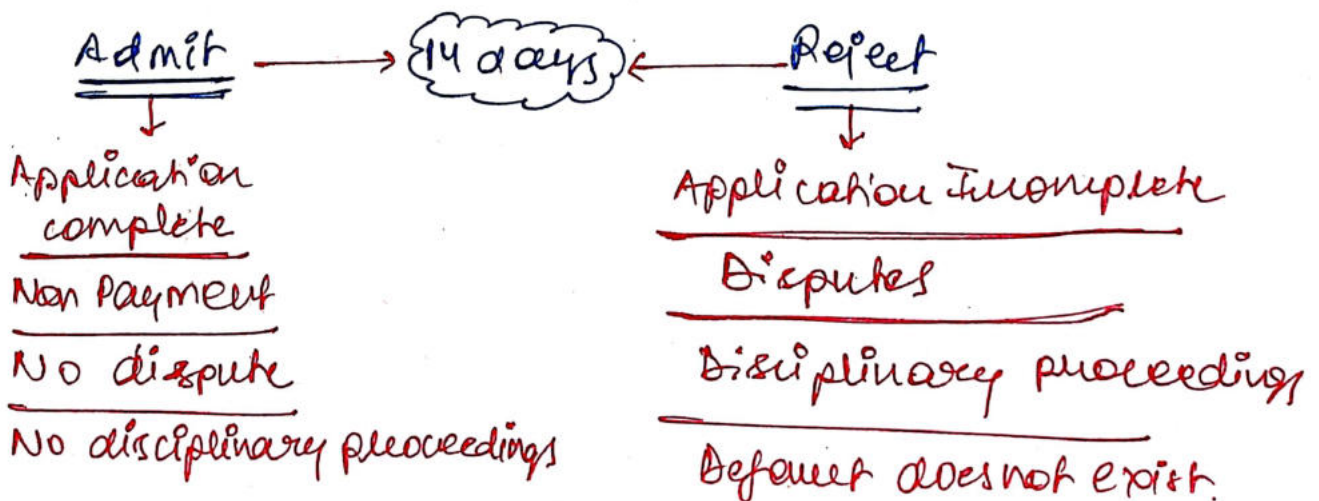 Admit → 14 days ← Reject
Application
complete
Non Payment
No dispute
No disciplinary proceedings
Application Incomplete
Disputes
Disciplinary proceedings
Default does not exist.